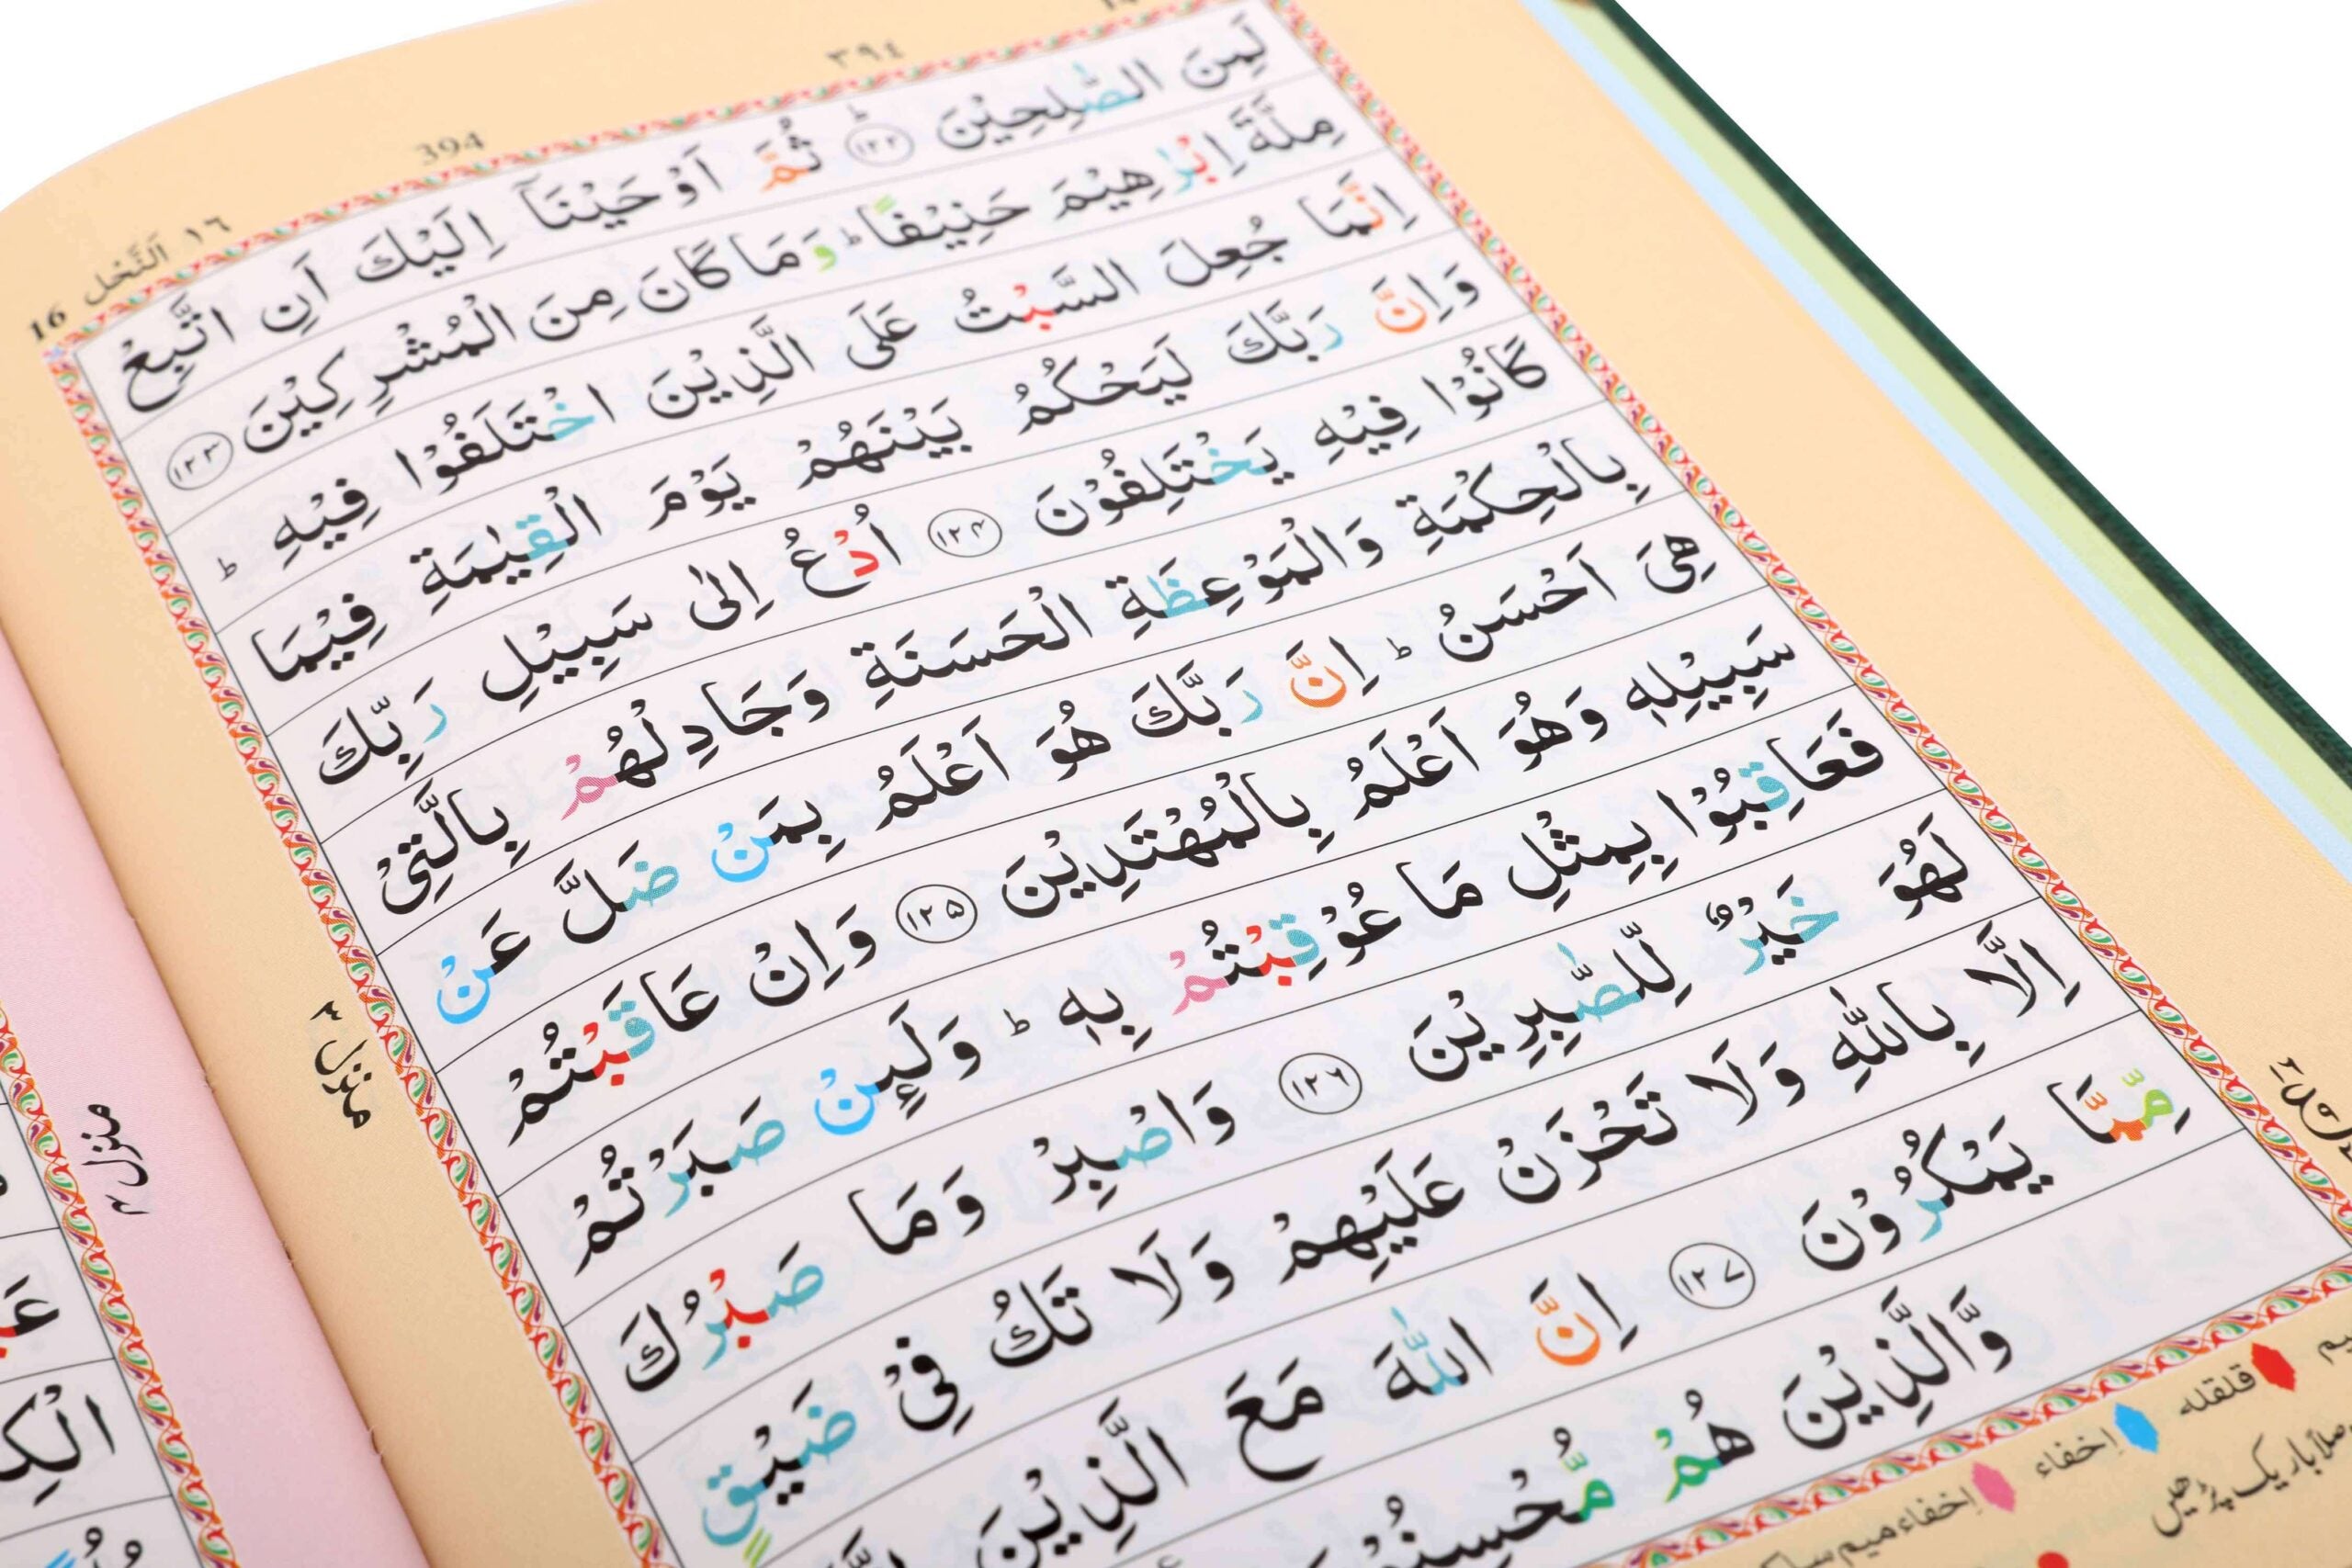 ٣٩٤
394
١٦ اَلنَّحْل 16
لَمِنَ الصّٰلِحِيْنَ ١٢٢ ؕ ثُمَّ اَوْحَيْنَاۤ اِلَيْكَ اَنِ اتَّبِعْ
مِلَّةَ اِبْرٰهِيْمَ حَنِيْفًا ؕ وَمَا كَانَ مِنَ الْمُشْرِكِيْنَ ١٢٣
اِنَّمَا جُعِلَ السَّبْتُ عَلَى الَّذِيْنَ اخْتَلَفُوْا فِيْهِ ؕ
وَاِنَّ رَبَّكَ لَيَحْكُمُ بَيْنَهُمْ يَوْمَ الْقِيٰمَةِ فِيْمَا
كَانُوْا فِيْهِ يَخْتَلِفُوْنَ ١٢٤ اُدْعُ اِلٰى سَبِيْلِ رَبِّكَ
بِالْحِكْمَةِ وَالْمَوْعِظَةِ الْحَسَنَةِ وَجَادِلْهُمْ بِالَّتِيْ
هِيَ اَحْسَنُ ؕ اِنَّ رَبَّكَ هُوَ اَعْلَمُ بِمَنْ ضَلَّ عَنْ
سَبِيْلِهٖ وَهُوَ اَعْلَمُ بِالْمُهْتَدِيْنَ ١٢٥ وَاِنْ عَاقَبْتُمْ
فَعَاقِبُوْا بِمِثْلِ مَا عُوْقِبْتُمْ بِهٖ ؕ وَلَىِٕنْ صَبَرْتُمْ
لَهُوَ خَيْرٌ لِّلصّٰبِرِيْنَ ١٢٦ وَاصْبِرْ وَمَا صَبْرُكَ
اِلَّا بِاللّٰهِ وَلَا تَحْزَنْ عَلَيْهِمْ وَلَا تَكُ فِيْ ضَيْقٍ
مِّمَّا يَمْكُرُوْنَ ١٢٧ اِنَّ اللّٰهَ مَعَ الَّذِيْنَ
وَّالَّذِيْنَ هُمْ مُّحْسِنُوْنَ
منزل ٣
منزل ٣
قلقله
اِخفاء
اِخفاء ميم ساكن
باریک پڑھیں